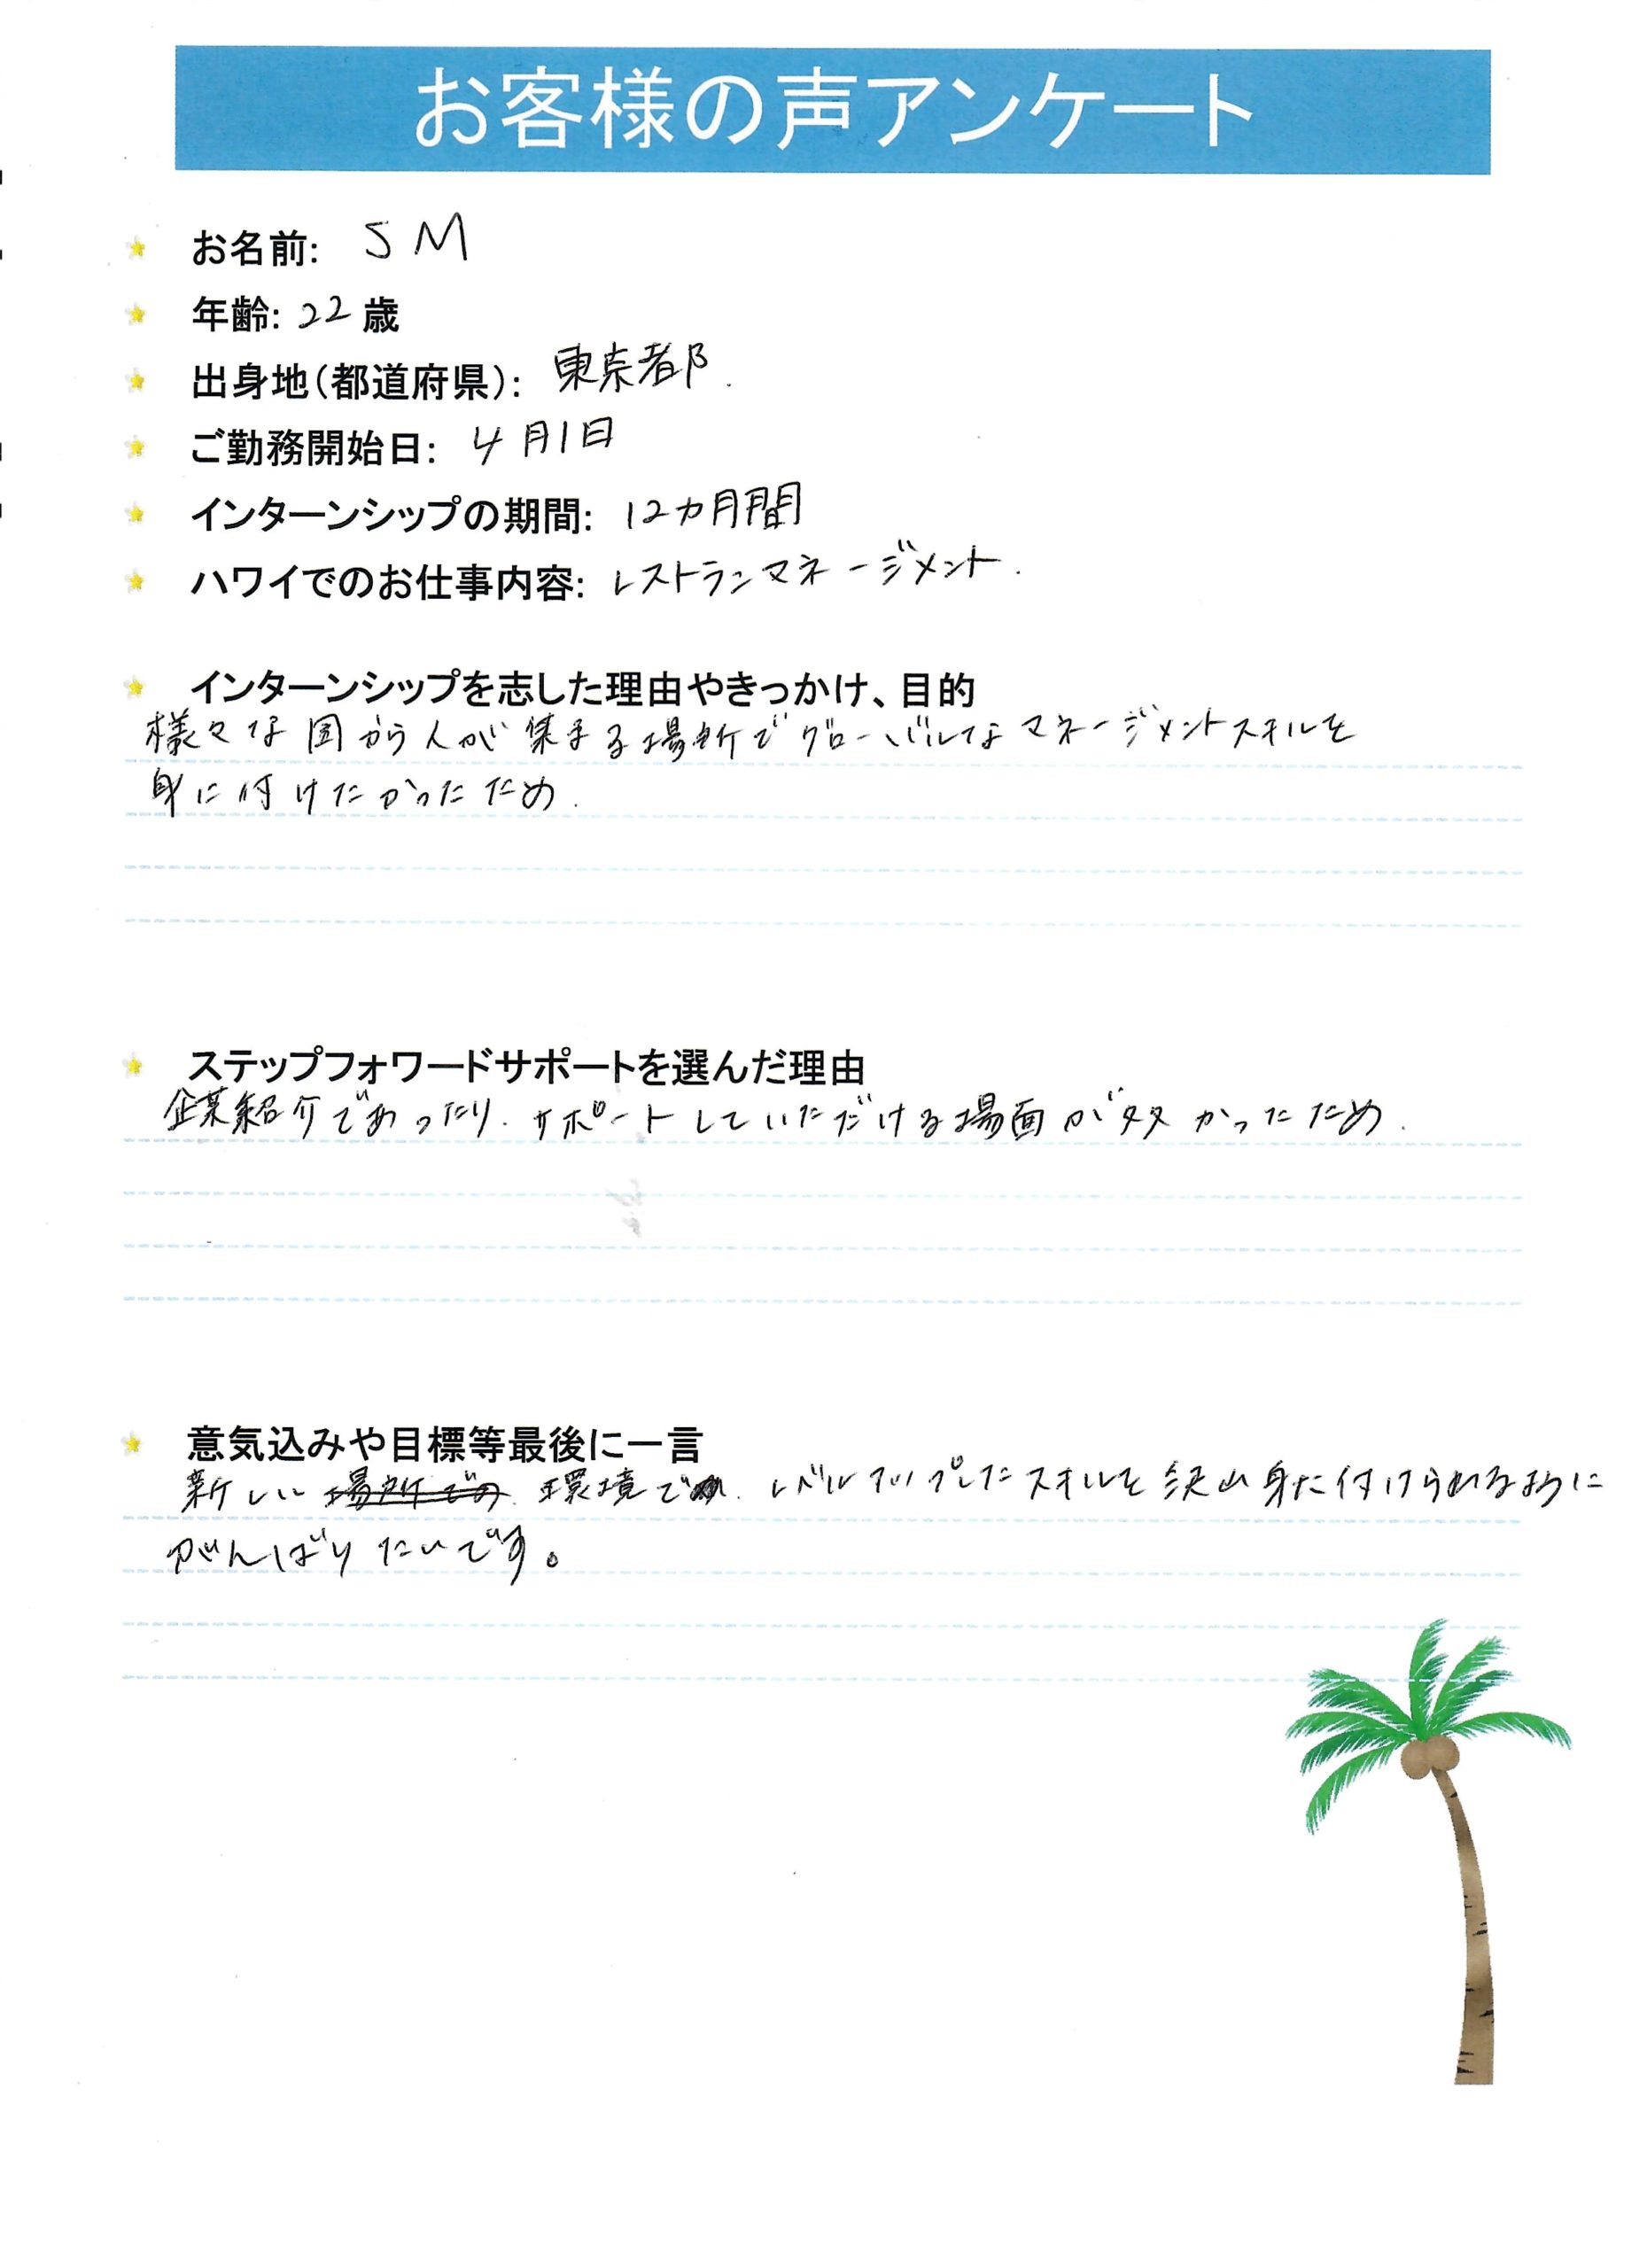 お客様の声アンケート
お名前: SM
年齢: 22歳
出身地(都道府県): 東京都.
ご勤務開始日: 4月1日
インターンシップの期間: 12カ月間
ハワイでのお仕事内容: レストランマネージメント.
インターンシップを志した理由やきっかけ、目的
様々な国から人が集まる場所でグローバルなマネージメントスキルを
身に付けたかったため.
ステップフォワードサポートを選んだ理由
企業紹介であったり.サポートしていただける場面が多かったため.
意気込みや目標等最後に一言
新しい場所での.環境で.レベルアップしたスキルを沢山身に付けられるように
がんばりたいです。